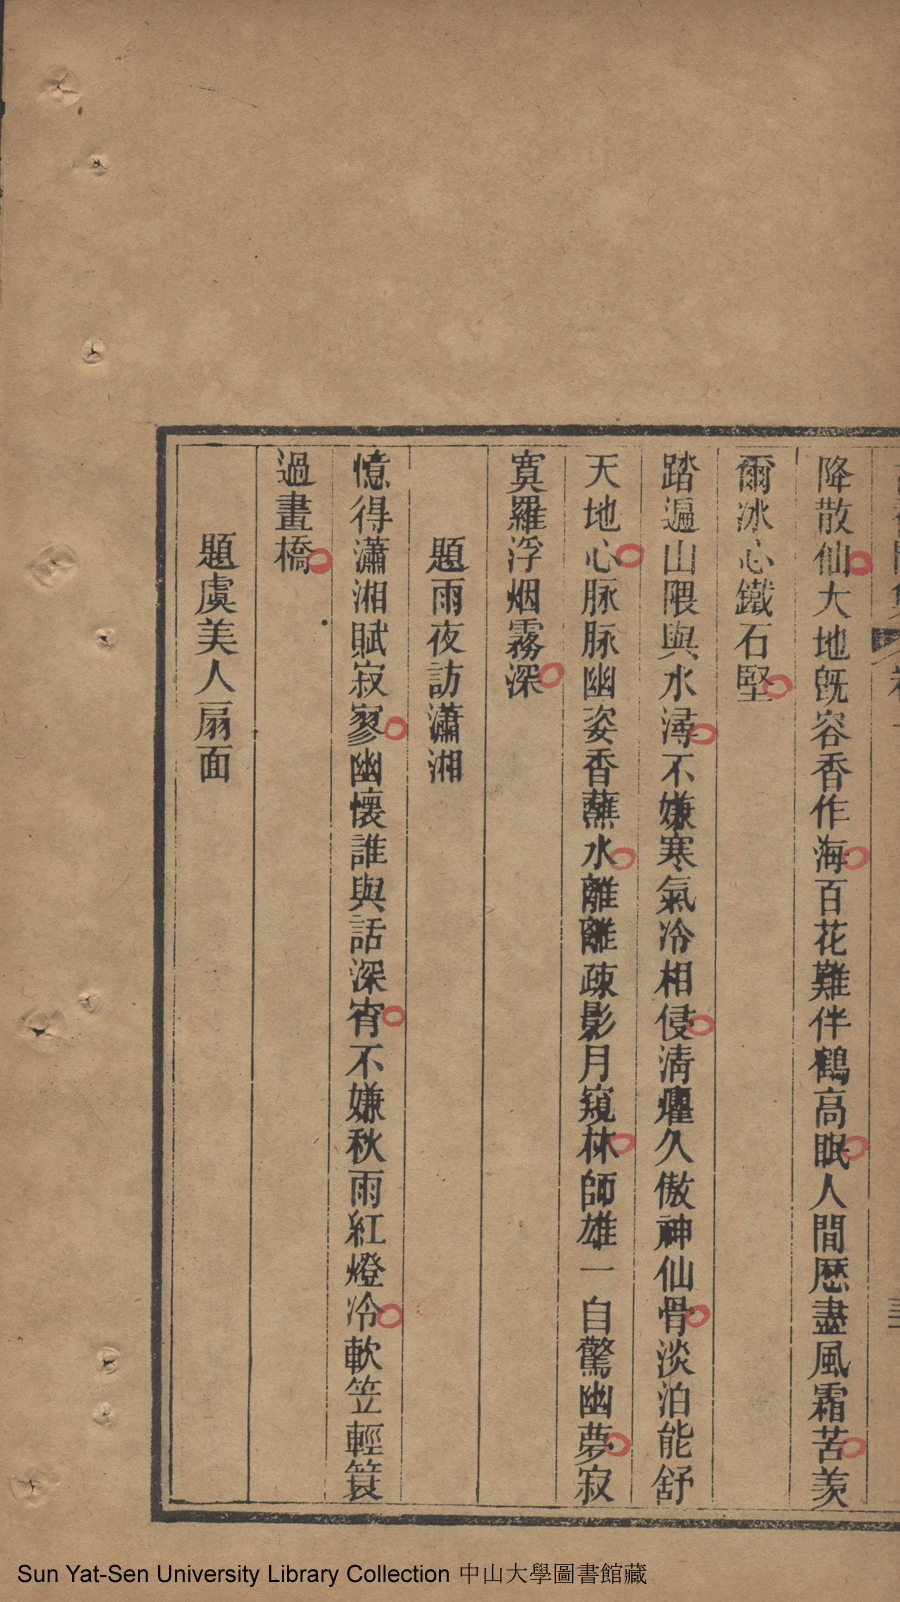 降散仙大地旣容香作海百花難伴鶴高眠人間歷盡風霜苦羨
爾冰心鐵石堅
踏遍山隈與水潯不嫌寒氣冷相侵淸癯久傲神仙骨淡泊能舒
天地心脉脉幽姿香蘸水離離疎影月窺林師雄一自驚幽夢寂
寞羅浮烟霧深
題雨夜訪瀟湘
憶得瀟湘賦寂寥幽懷誰與話深宵不嫌秋雨紅燈冷軟笠輕簑
過畫橋
題虞美人扇面
Sun Yat-Sen University Library Collection 中山大學圖書館藏